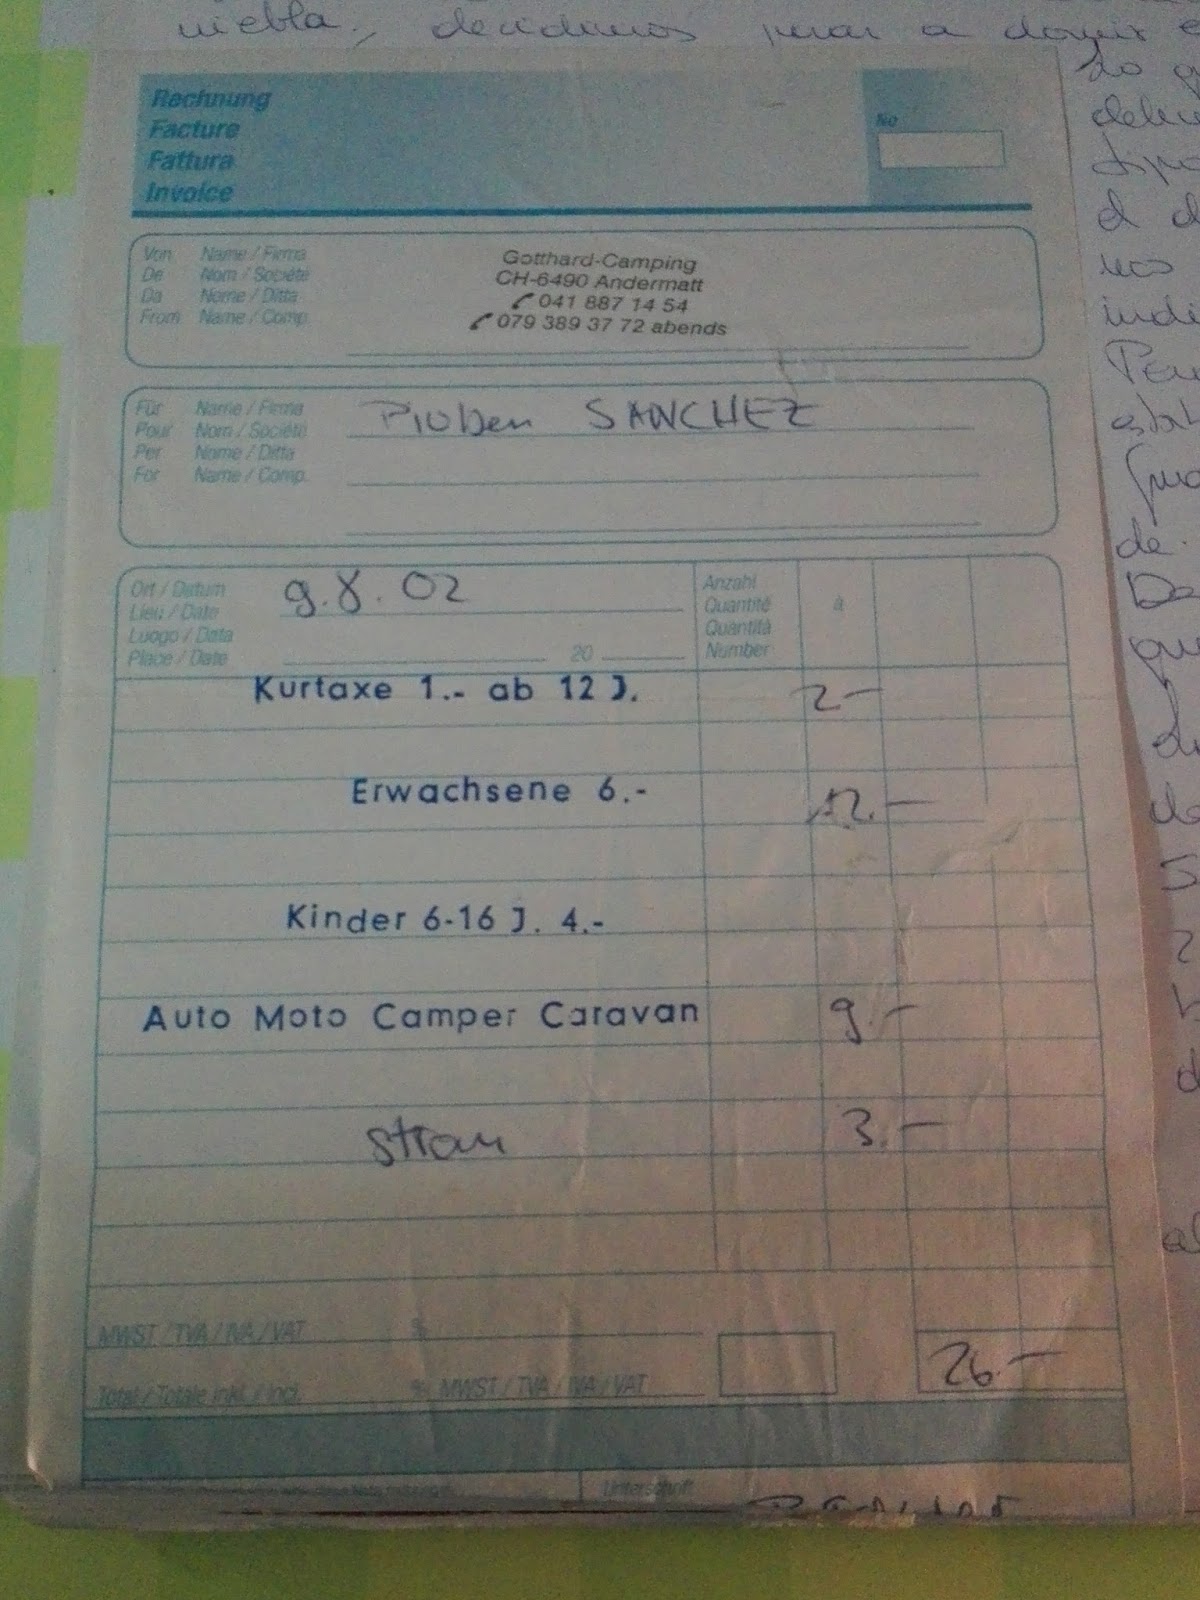 niebla., decidimos parar a dormir
Rechnung
Facture
Fattura
Invoice
No
Von Name / Firma
De Nom / Société
Da Nome / Ditta
From Name / Comp.
Gotthard-Camping
CH-6490 Andermatt
041 887 14 54
079 389 37 72 abends
Für Name / Firma
Pour Nom / Société
Per Nome / Ditta
For Name / Comp.
Ruben SANCHEZ
Ort / Datum
Lieu / Date
Luogo / Data
Place / Date
9.8.02
20
Anzahl
Quantité
Quantità
Number
à
Kurtaxe 1.- ab 12 J. 2-
Erwachsene 6.- 12.-
Kinder 6-16 J. 4.-
Auto Moto Camper Caravan 9.-
Strom 3.-
MWST / TVA / IVA / VAT %
Total / Totale inkl. / incl. % MWST / TVA / IVA / VAT
26.-
Unterschrift
de.